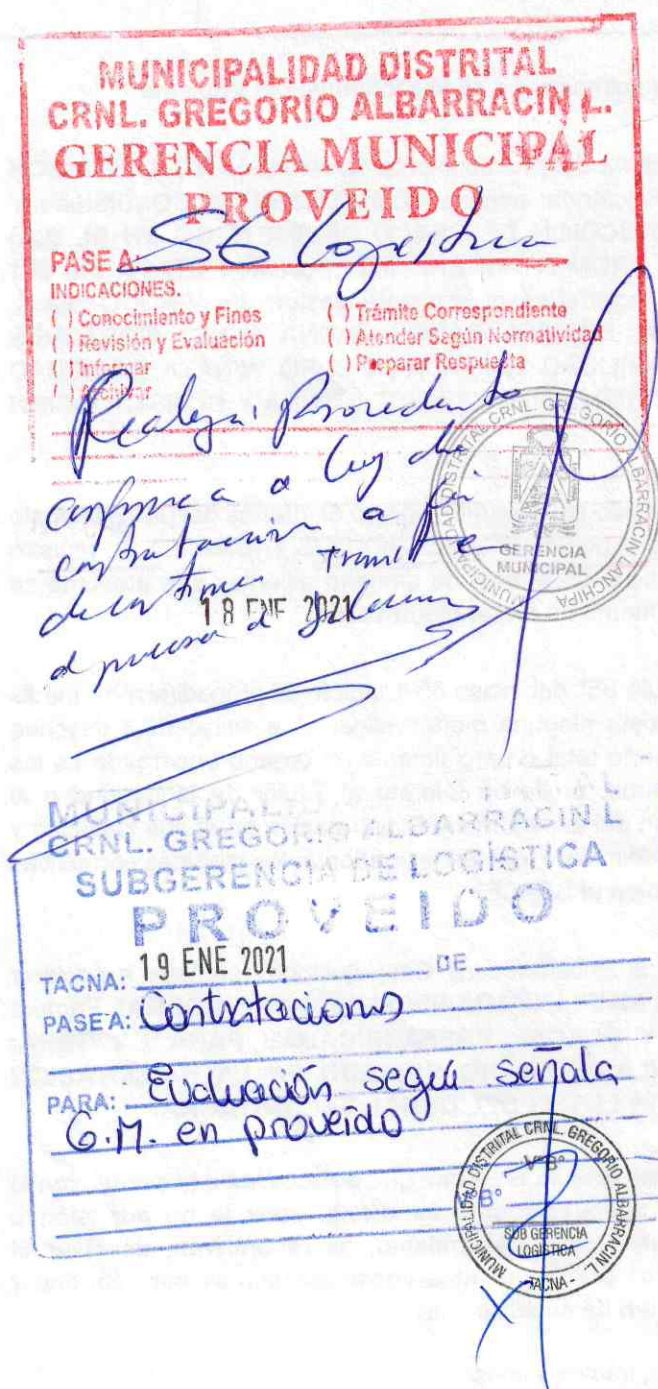 MUNICIPALIDAD DISTRITAL
CRNL. GREGORIO ALBARRACIN L.
GERENCIA MUNICIPAL
PROVEIDO
PASE A: SG Logistica
INDICACIONES.
( ) Conocimiento y Fines
( ) Revisión y Evaluación
( ) Informar
( ) Archivar
( ) Trámite Correspondiente
( ) Atender Según Normatividad
( ) Preparar Respuesta
Realizar Procedimiento
conforme a Ley de
contratación a fin
de continuar tramite
d proceso d
18 ENE 2021
MUNICIPALIDAD DISTRITAL CRNL. GREGORIO ALBARRACIN LANCHIPA
GERENCIA
MUNICIPAL
MUNICIPALI L
CRNL. GREGORIO ALBARRACIN L
SUBGERENCIA DE LOGISTICA
PROVEIDO
TACNA: 19 ENE 2021 DE
PASE A: Contrataciones
PARA: Evaluación según señala
G.M. en proveido
MUNICIPALIDAD DISTRITAL CRNL. GREGORIO ALBARRACIN L.
V°B°
SUB GERENCIA
LOGISTICA
- TACNA -